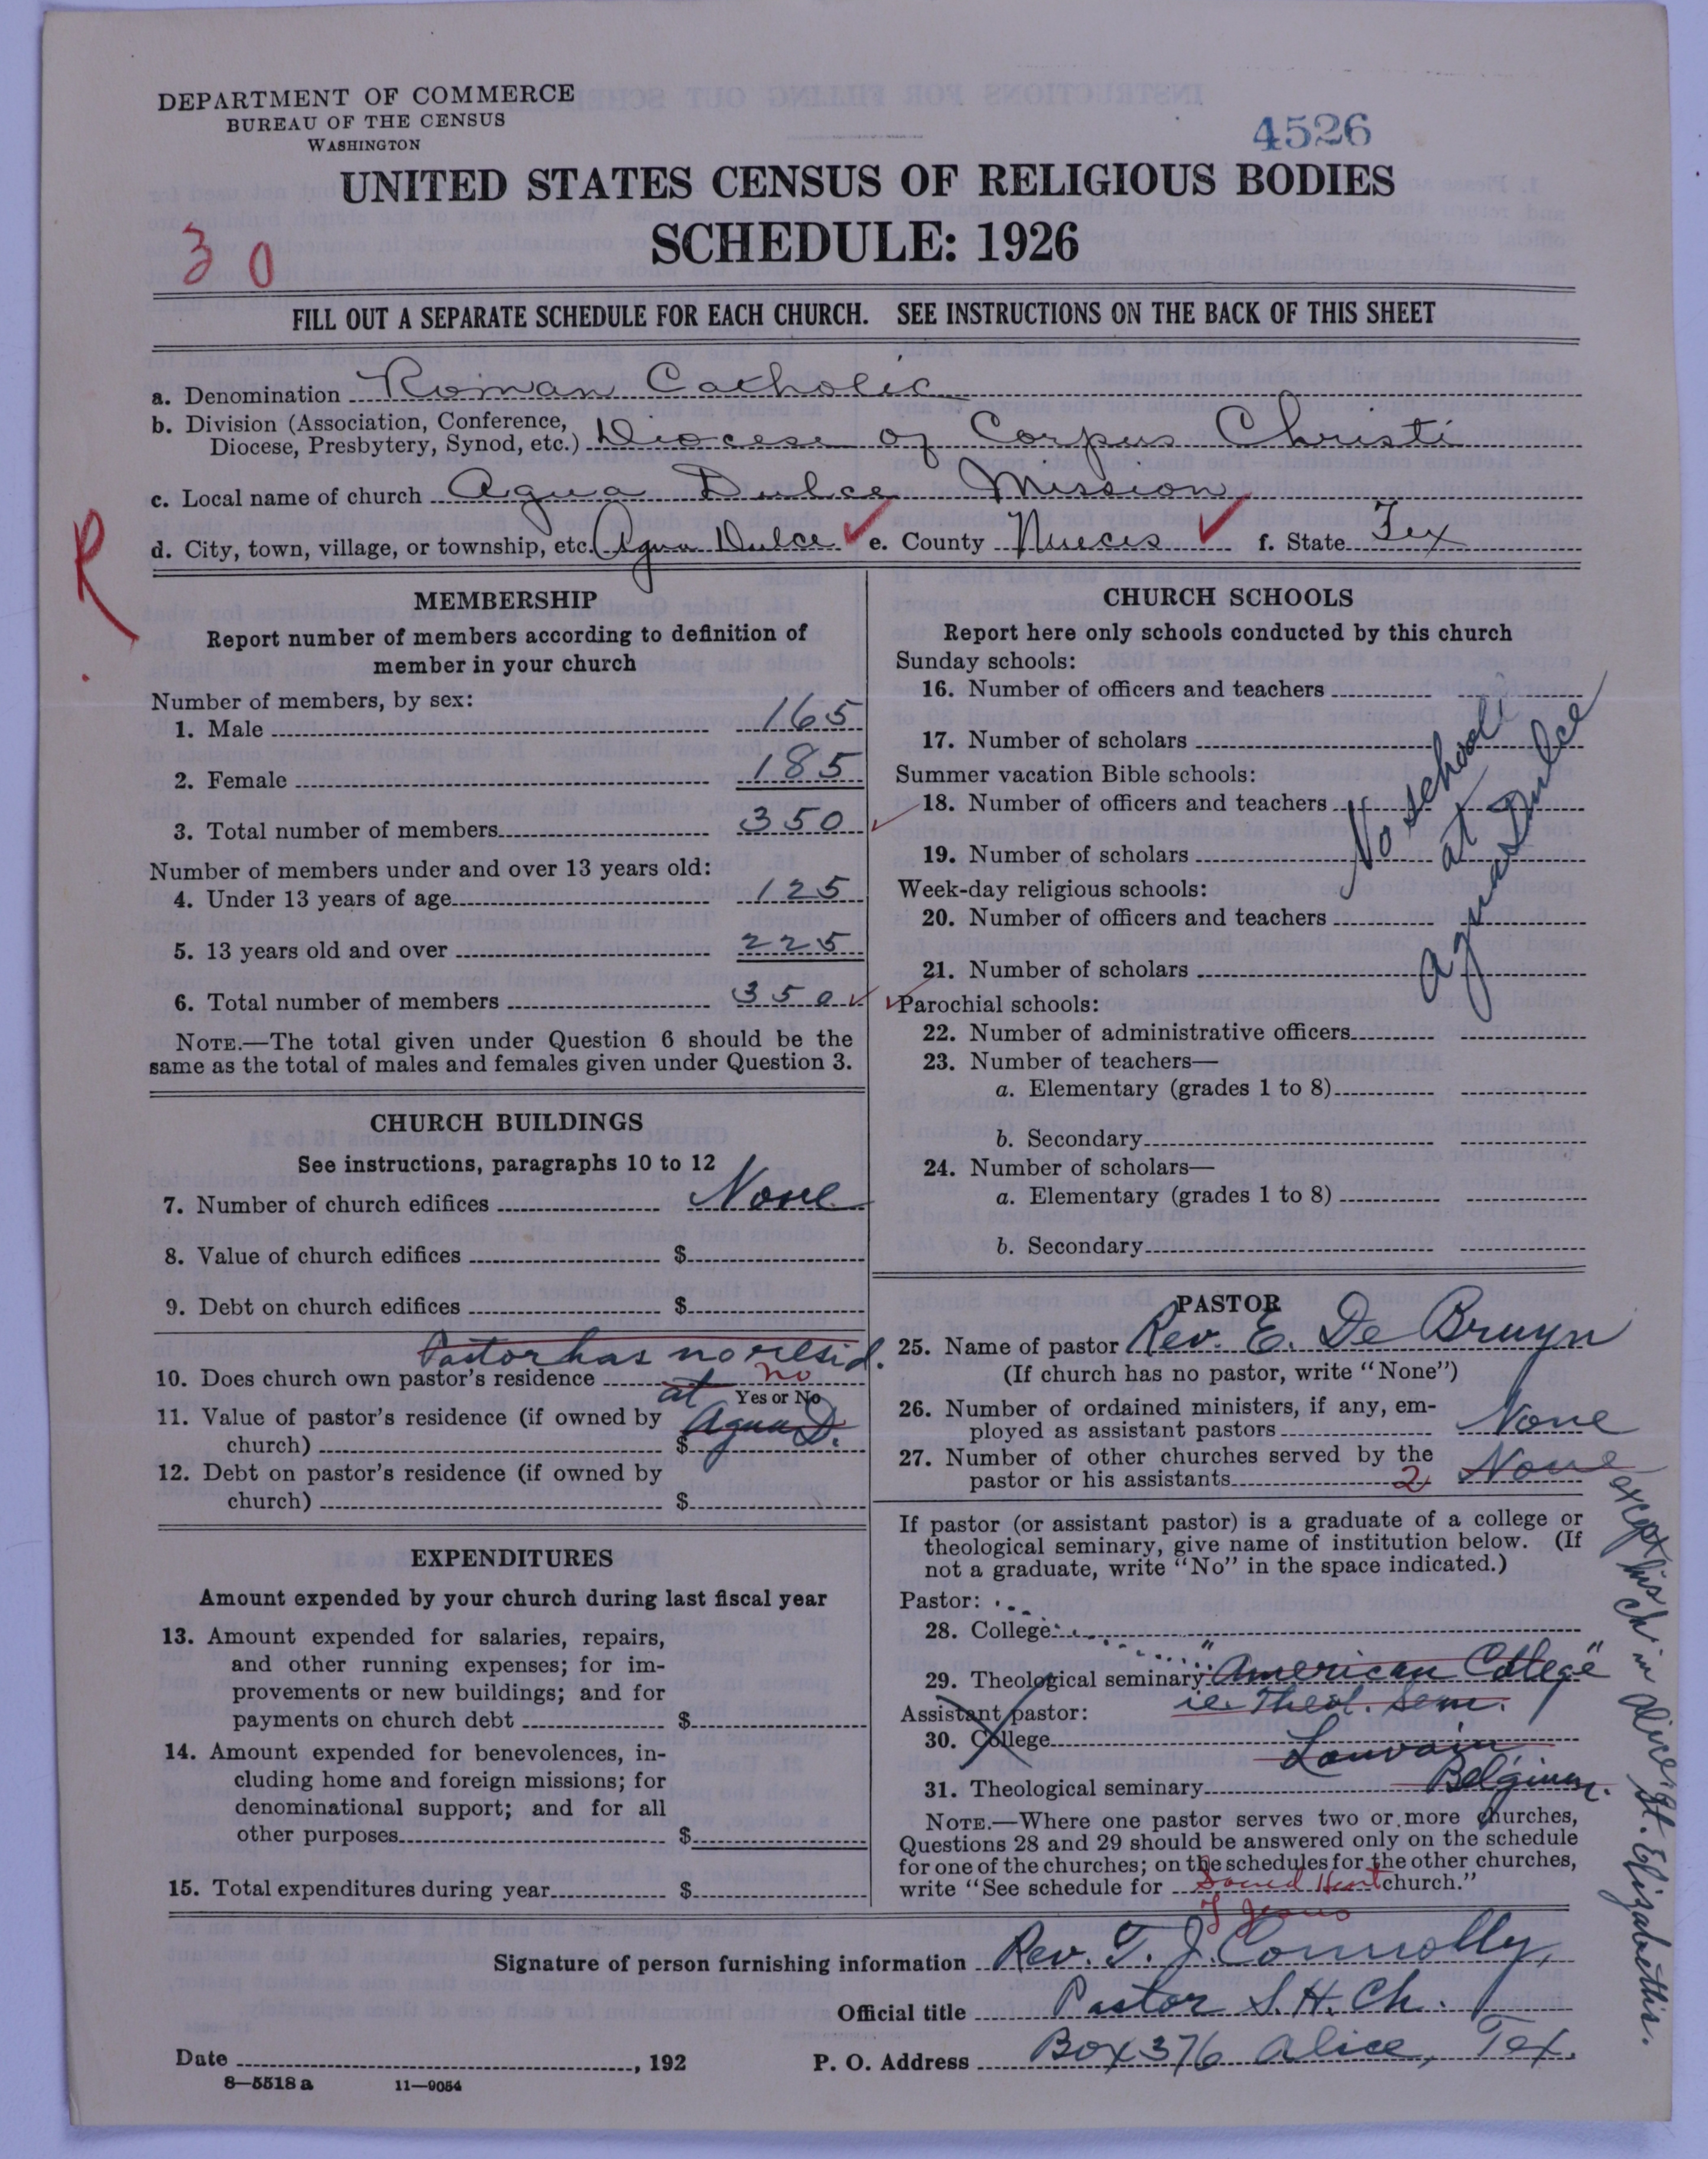 DEPARTMENT OF COMMERCE
BUREAU OF THE CENSUS
WASHINGTON
4526
UNITED STATES CENSUS OF RELIGIOUS BODIES
SCHEDULE: 1926
30
FILL OUT A SEPARATE SCHEDULE FOR EACH CHURCH. SEE INSTRUCTIONS ON THE BACK OF THIS SHEET
a. Denomination Roman Catholic
b. Division (Association, Conference,
Diocese, Presbytery, Synod, etc.) Diocese of Corpus Christi
c. Local name of church Agua Dulce Mission
R
d. City, town, village, or township, etc. Agua Dulce e. County Nueces f. State Tex
MEMBERSHIP
Report number of members according to definition of
member in your church
Number of members, by sex:
1. Male 165
2. Female 185
3. Total number of members 350
Number of members under and over 13 years old:
4. Under 13 years of age 125
5. 13 years old and over 225
6. Total number of members 350
NOTE.—The total given under Question 6 should be the
same as the total of males and females given under Question 3.
CHURCH BUILDINGS
See instructions, paragraphs 10 to 12
7. Number of church edifices None
8. Value of church edifices $
9. Debt on church edifices $
Pastor has no resid.
10. Does church own pastor's residence no
at Yes or No
11. Value of pastor's residence (if owned by Agua D.
church) $
12. Debt on pastor's residence (if owned by
church) $
EXPENDITURES
Amount expended by your church during last fiscal year
13. Amount expended for salaries, repairs,
and other running expenses; for im-
provements or new buildings; and for
payments on church debt $
14. Amount expended for benevolences, in-
cluding home and foreign missions; for
denominational support; and for all
other purposes $
15. Total expenditures during year $
CHURCH SCHOOLS
Report here only schools conducted by this church
Sunday schools:
16. Number of officers and teachers
17. Number of scholars
Summer vacation Bible schools:
18. Number of officers and teachers
19. Number of scholars
Week-day religious schools:
20. Number of officers and teachers
21. Number of scholars
No school
at
Agua Dulce
Parochial schools:
22. Number of administrative officers
23. Number of teachers—
a. Elementary (grades 1 to 8)
b. Secondary
24. Number of scholars—
a. Elementary (grades 1 to 8)
b. Secondary
PASTOR
25. Name of pastor Rev. E. De Bruyn
(If church has no pastor, write "None")
26. Number of ordained ministers, if any, em-
ployed as assistant pastors None
27. Number of other churches served by the
pastor or his assistants 2 None
except his ch in Alice. St. Elizabeth's.
If pastor (or assistant pastor) is a graduate of a college or
theological seminary, give name of institution below. (If
not a graduate, write "No" in the space indicated.)
Pastor:
28. College
29. Theological seminary "American College"
Assistant pastor: i.e. Theol. Sem.
30. College Louvain,
31. Theological seminary Belgium.
NOTE.—Where one pastor serves two or more churches,
Questions 28 and 29 should be answered only on the schedule
for one of the churches; on the schedules for the other churches,
write "See schedule for Sacred Heart church."
of Jesus
Signature of person furnishing information Rev. T. J. Connolly,
Official title Pastor S.H. Ch.
Date , 192
P. O. Address Box 376 Alice, Tex.
8—5518 a 11—9054